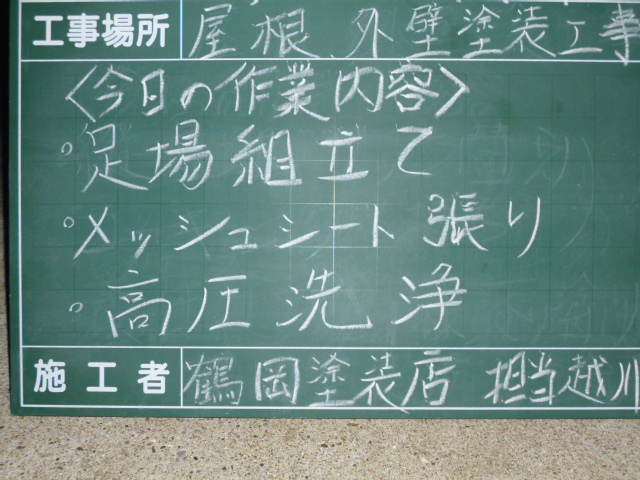 工事場所 屋根、外壁塗装工事
〈今日の作業内容〉
○足場組立て
○メッシュシート張り
○高圧洗浄
施工者 鶴岡塗装店 担当越川